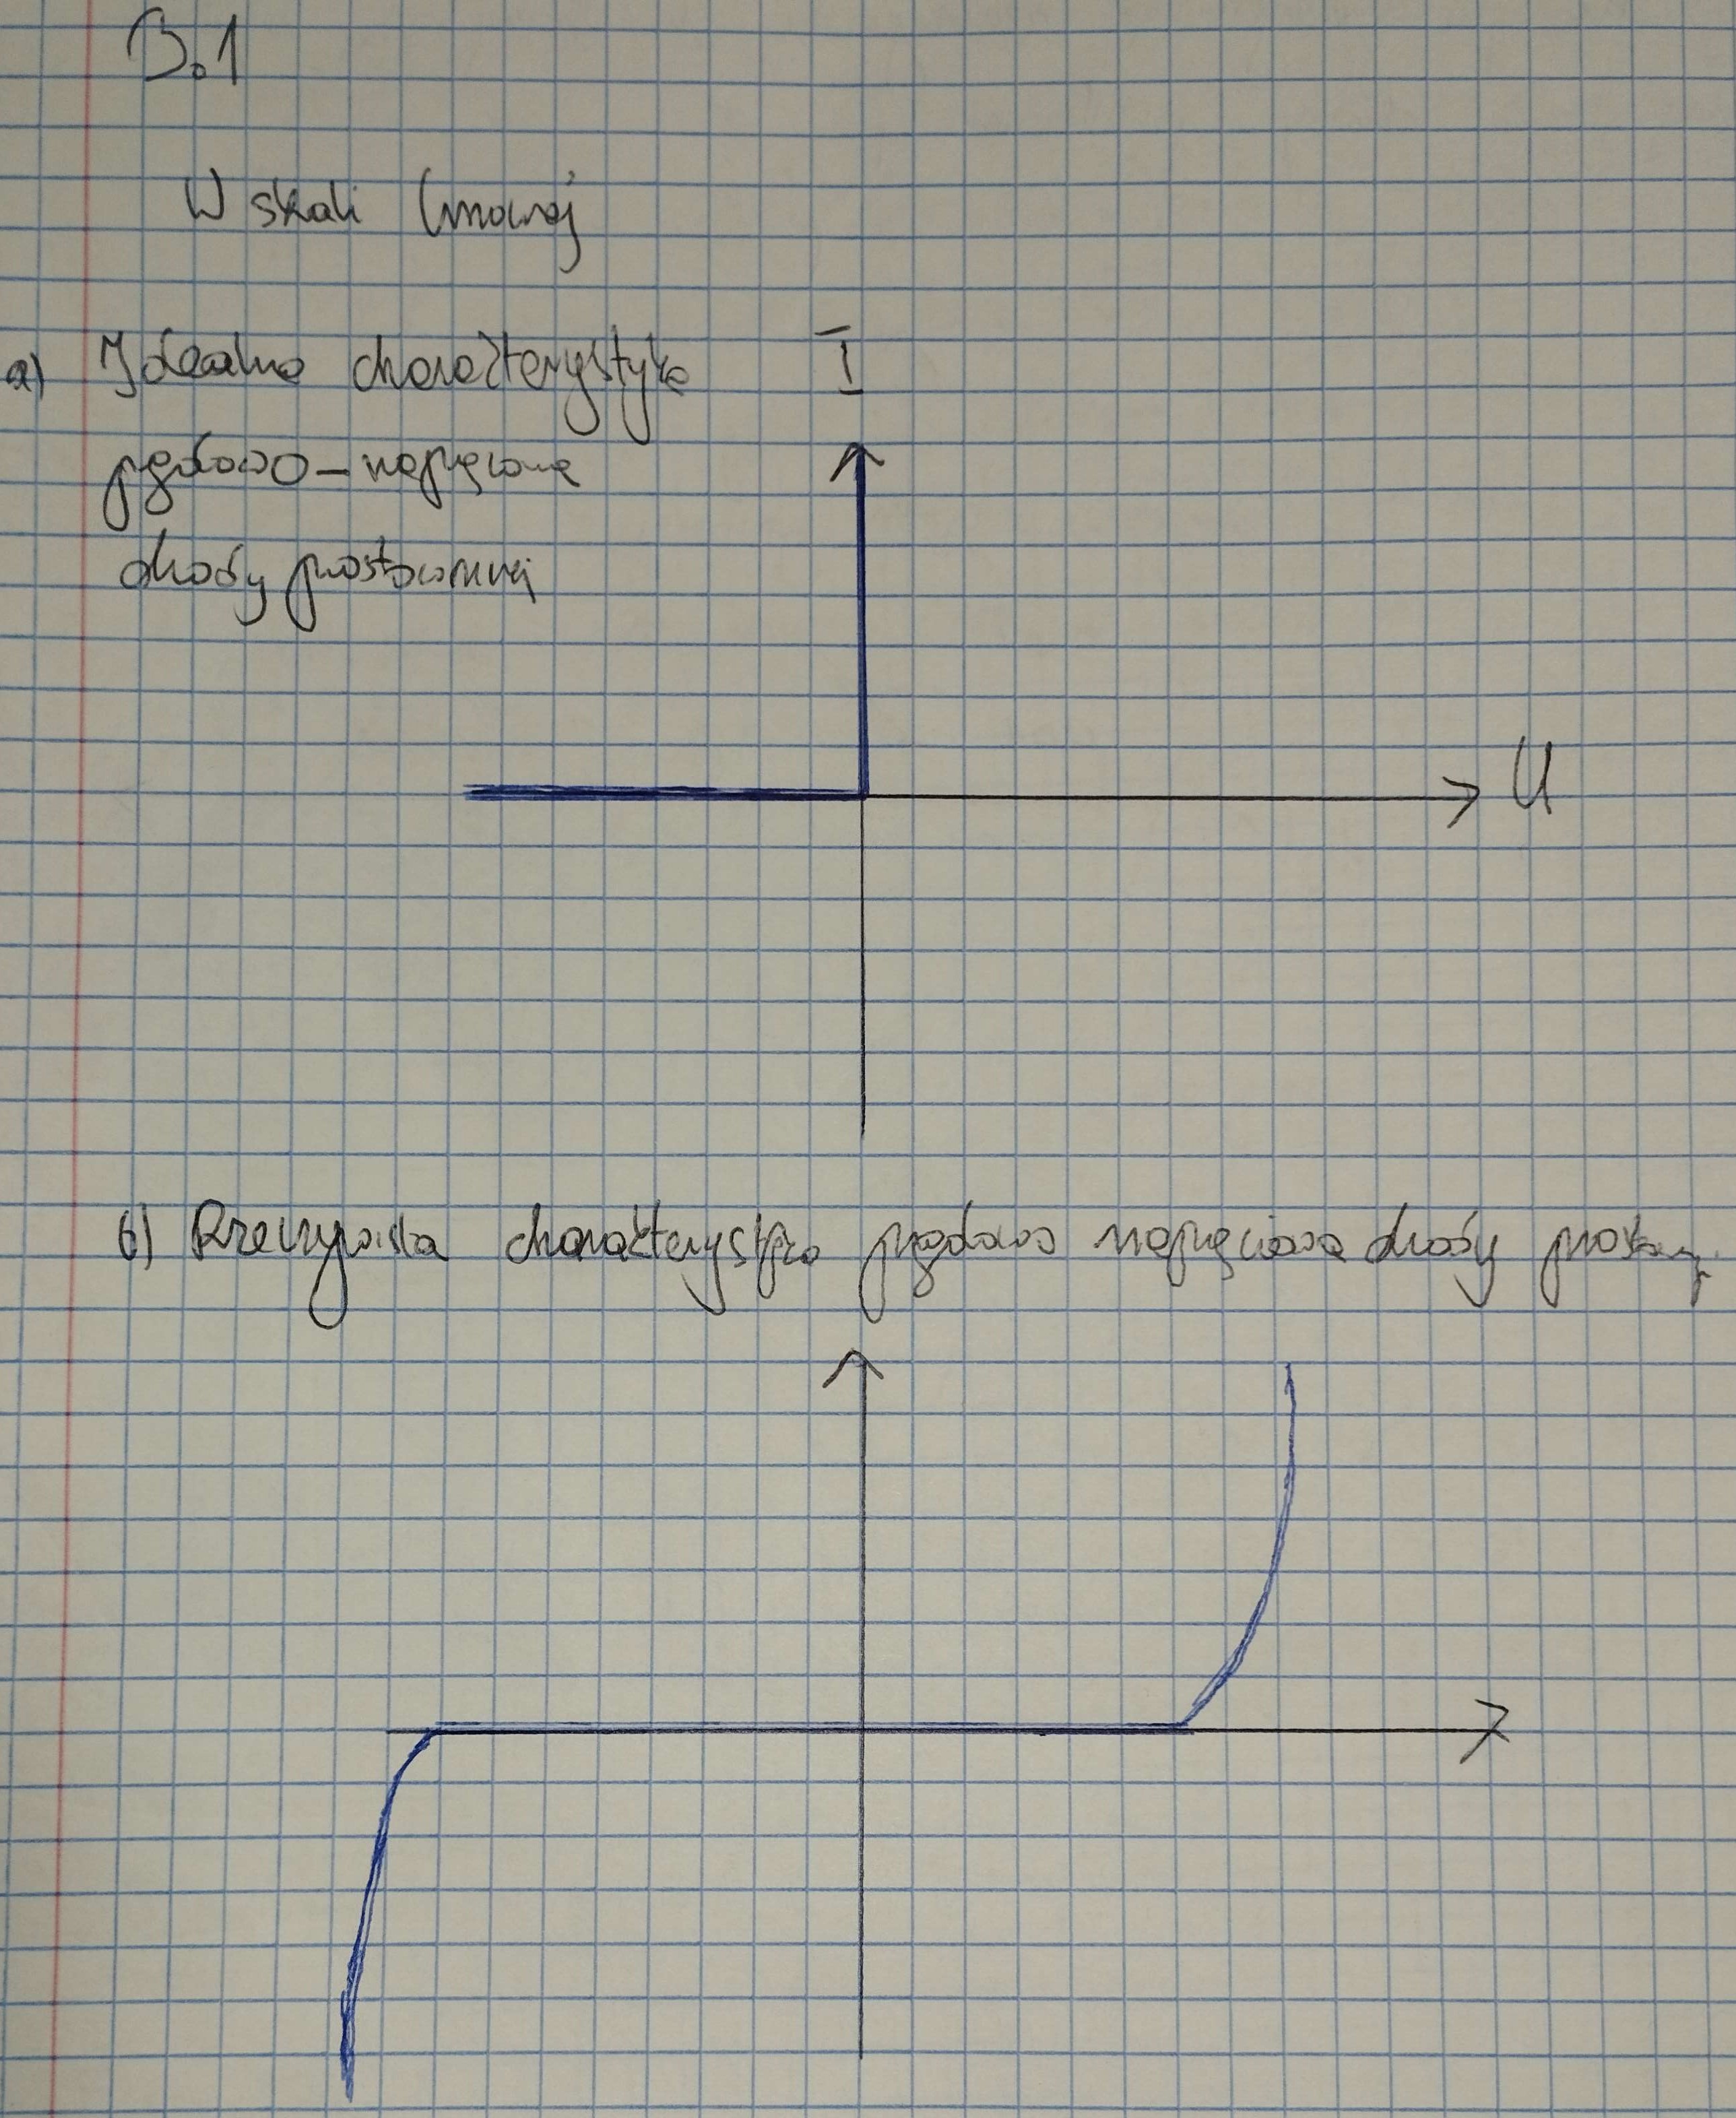 3.1
W skali liniowej
a) Idealna charakterystyka
I
prądowo-napięciowa
diody prostowniczej
U
b) Rzeczywista charakterystyka prądowo napięciowa diody prostown.